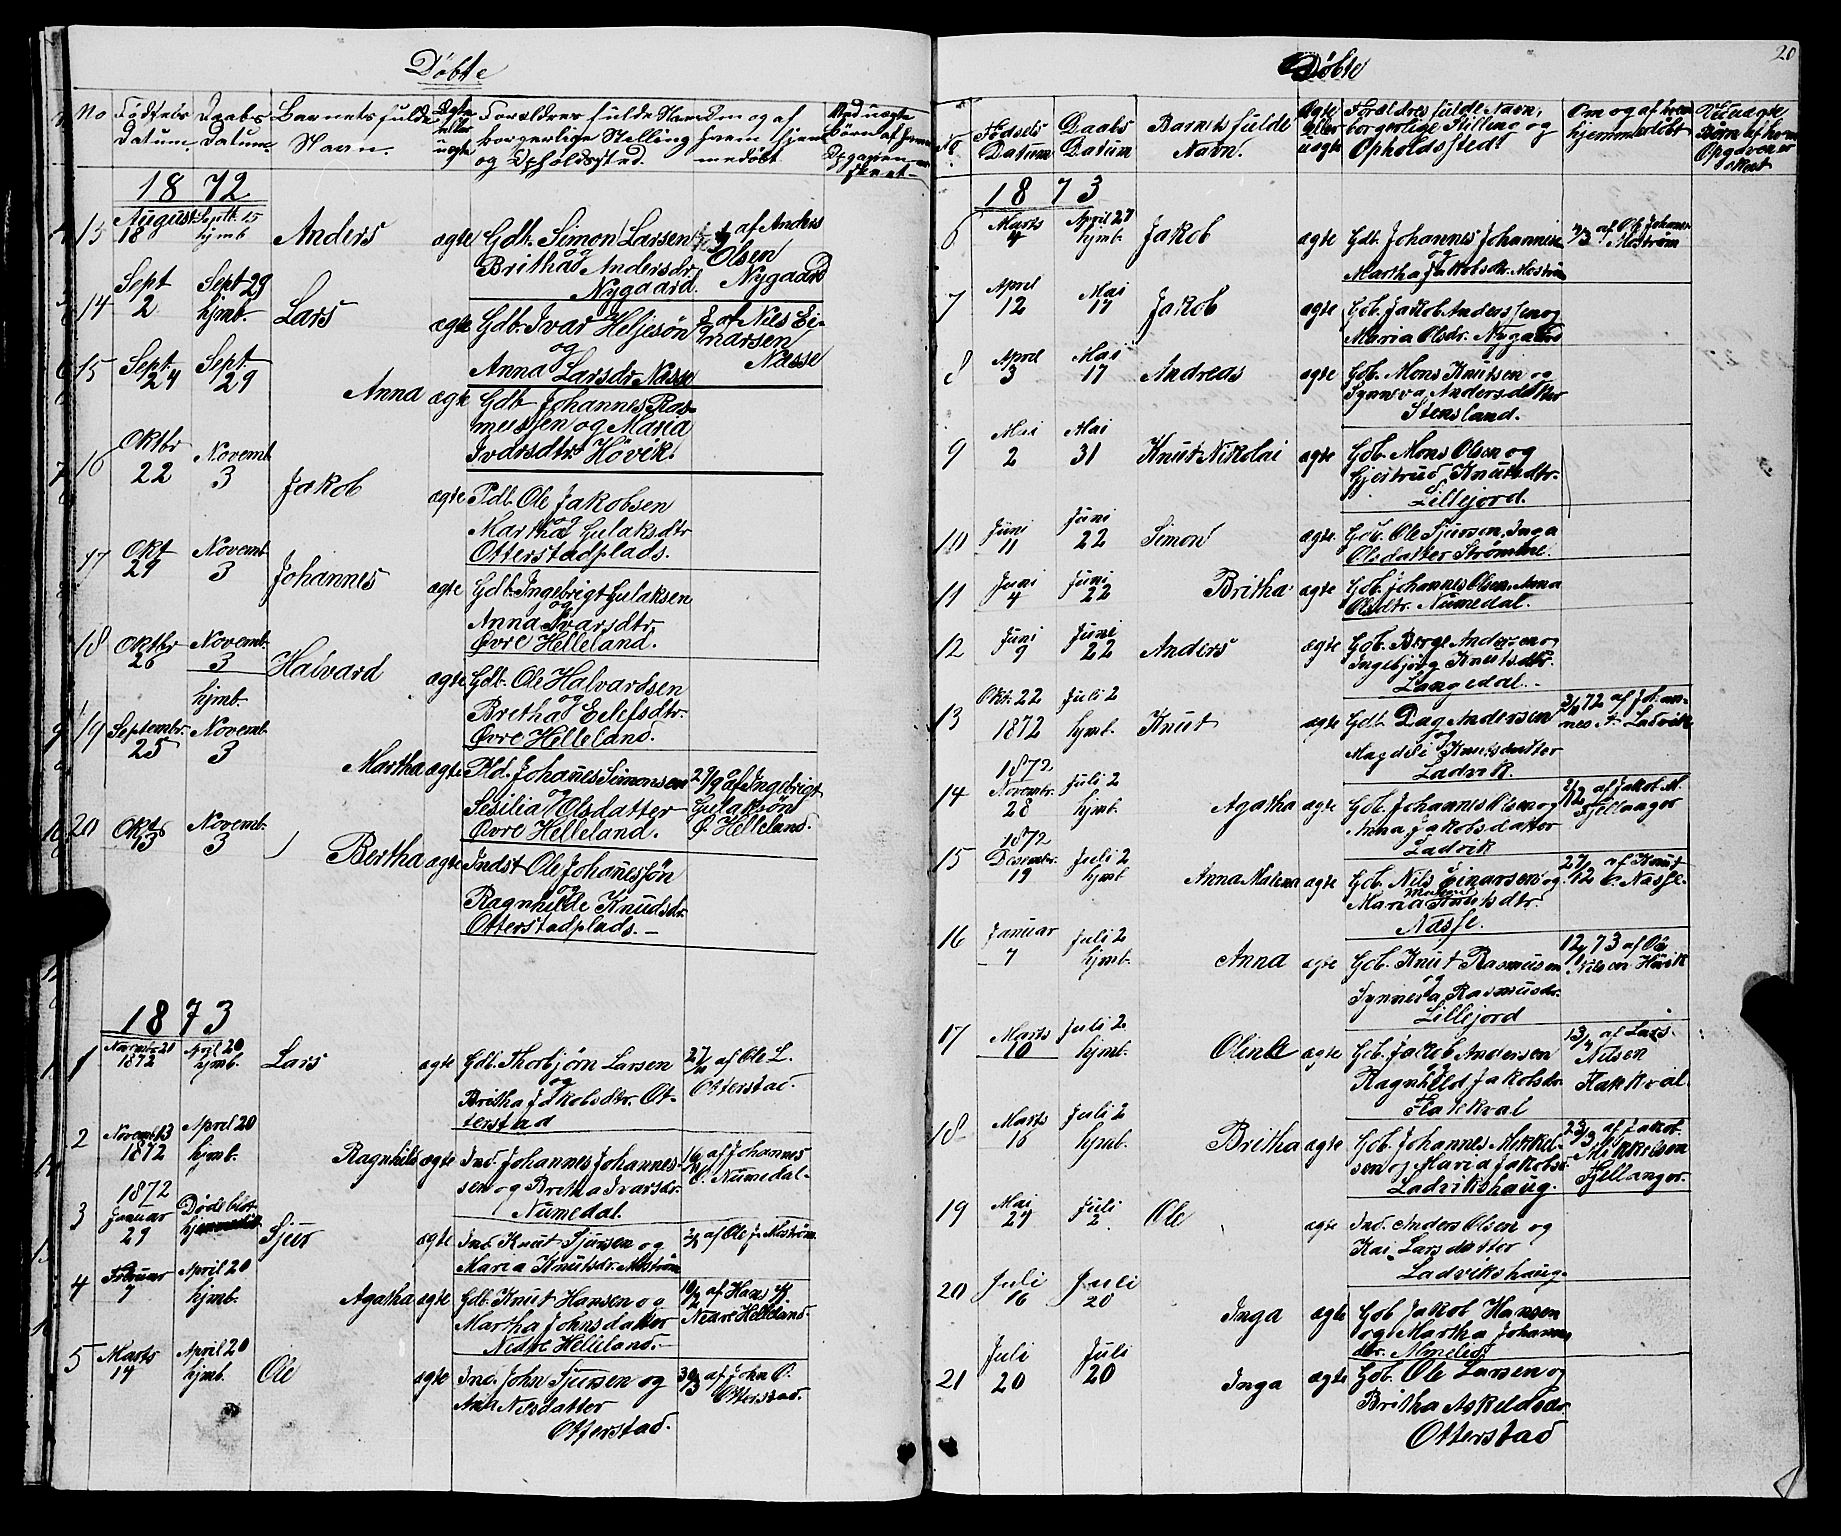 Døbte
No Fødsels Datum. Daabs Datum. Barnets fulde Navn. Ægte eller uægte Forældres fulde Navn borgerlige Stilling og Opholdssted. Om og af hvem hjemmedøbt Ved uægte Børn af hvem Opgaven er sket
1872
13 August 18 Septb. 15 hjmb Anders ægte Gdb. Simon Larsen og Britha Andersdr. Nygaard. af Anders Olsen Nygaard
14 Sept 2 Sept 29 hjmb. Lars ægte Gdb. Ivar Heljesøn og Anna Larsdr. Nasse af Nils Einarsen Nasse
15 Sept 24 Sept. 29 Anna ægte Gdb. Johannes Rasmussen og Maria Ivarsdtr. Høvik.
16 Oktbr 22 Novemb. 3 Jakob ægte Pdb. Ole Jakobsen og Martha Gulaksdtr Otterstadplads.
17 Okt 29 Novemb. 3 Johannes ægte Gdb. Ingebrigt Gulaksen og Anna Ivarsdtr. Øvre Helleland.
18 Oktbr 26 Novemb. 3 Halvard ægte Gdb. Ole Halvardsen og Bretha Eilefsdtr. Øvre Helleland.
19 Septembr. 25 hjmb. Novemb. 3 Martha ægte Pld. Johanes Simonsen og Sesilia Olsdatter Øvre Helleland. 27/9 af Ingebrigt Gulaksøn Ø. Helleland.
20 Oktb 13 Novemb. 3 Bertha ægte Indst Ole Johanessøn og Ragnhilde Knudsdr. Otterstadplads.
1873
1 Novmbr 21 1872 April 20 hjmb. Lars ægte Gdb. Thorbjørn Larsen og Britha Jakobsdtr. Otterstad af Ole L. Otterstad.
2 Novemb 3 1872 April 20 hjmb. Ragnhild ægte Ind. Johannes Johannessen og Bretha Ivarsdr. Numedal. af Johannes O. Numedal
3 1872 Januar 29 Døde blot Sjur ægte Ind. Knut Sjursen og Maria Knutsdr. Mostrøm af Ole J. Mostrøm
4 Februar 7 April 20 hjmb. Agatha ægte Gdb. Knut Hansen og Martha Johnsdatter Nedre Helleland. af Hans Nedre Helleland
5 Marts 14 April 20 hjmb. Ole ægte Ind. John Sjursen og Anna Nilsdatter Otterstad. 30/3 af John O. Otterstad.
20
Døbte
No. Fødsels Datum Daabs Datum Barnets fulde Navn. Ægte eller uægte Forældres fulde Navn, borgerlige Stilling og Opholdssted Om og af hvem hjemmedøbt Ved uægte Børn af hvem Opgaven er sket
1873
6 Marts 4 April 27 hjmb. Jakob ægte Gdb. Johannes Johannesen og Martha Jakobsdr. Mostrøm af Ole Johans. Mostrøm
7 April 12 Mai 17 Jakob ægte Gdb. Jakob Anderssen og Maria Olsdr. Nygaard
8 April 3 Mai 17 Andreas ægte Gdb. Mons Knutsen og Synneva Andersdatter Stensland.
9 Mai 2 Mai 31 Knut Nikolai ægte Gdb. Mons Olsen og Gjertrud Knutsdtr. Lillejord.
10 Juni 11 Juni 22 Simon ægte Gdb. Ole Sjursen, Inga Olsdatter Strømme.
11 Juni 4 Juni 22 Britha ægte Gdb. Johannes Olsen, Anna Olsdtr. Numedal.
12 Juni 9 Juni 22 Anders ægte Gdb. Berge Andersen og Ingebjørg Knutsdtr. Langedal.
13 Oktr. 22 1872 Juli 2 hjmb. Knut ægte Gdb. Dag Andersen og Magdeli Knutsdatter Ladvik. 72 af Johannes A. Ladvik
14 1872 Novembr. 28 Juli 2 hjmb. Agatha ægte Gdb. Johannes Olsen og Anna Jakobsdatter Ladvik af Jakob M. Fjellanger
15 1872 Desembr. 19 Juli 2 hjmb Anna Malena ægte Gdb. Nils Einarsen og Maria Knutsdtr. Nasse. 27/12 af Knut O. Nasse.
16 Januar 7 Juli 2 hjmb. Anna ægte Gdb. Knut Rasmussen og Synneva Rasmusdr. Lillejord 12/1 73 af Ole Nilsen Høvik
17 Marts 10 Juli 2 hjmb. Oline ægte Gdb. Jakob Andersen og Ragnhild Jakobsdr. Flatekval 13/4 af Lars Nilsen Flatekval
18 Marts 16 Juli 2 hjmb. Britha ægte Gdb. Johannes Mikkelsen og Maria Jakobsd. Ladvikshaug. 23/3 af Jakob Mikkelsen Fjellanger.
19 Mai 27 Juli 2 Ole ægte Ind. Anders Olsen og Kai Larsdatter Ladvikshaug.
20 Juli 16 Juli 20 Inga ægte Gdb Jakob Hansen og Martha Johannesdtr.
21 Juli 20 Juli 20 Inga ægte Gdb. Ole Larsen og Britha Askeldsdr. Otterstad